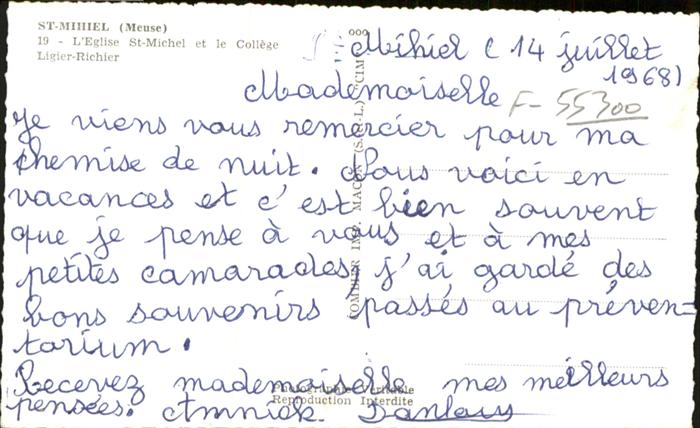 ST-MIHIEL (Meuse)
19 - L'Eglise St-Michel et le Collège
Ligier-Richier
St Mihiel l 14 juillet
1968)
Mademoiselle
F- 55300
Je viens vous remercier pour ma
chemise de nuit. Nous voici en
vacances et c'est bien souvent
que je pense à vous et à mes
petites camarades, j'ai gardé des
bons souvenirs passés au préven=
torium.
Recevez mademoiselle mes meilleurs
pensées. Annick
COMBIER IMP. MACON (S.-&-L.) "CIM"
Photographie Véritable
Reproduction Interdite